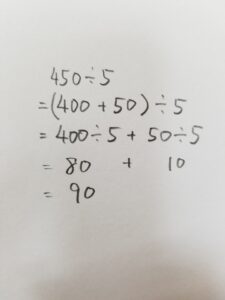 450÷5
=(400+50)÷5
=400÷5+50÷5
=80 + 10
=90